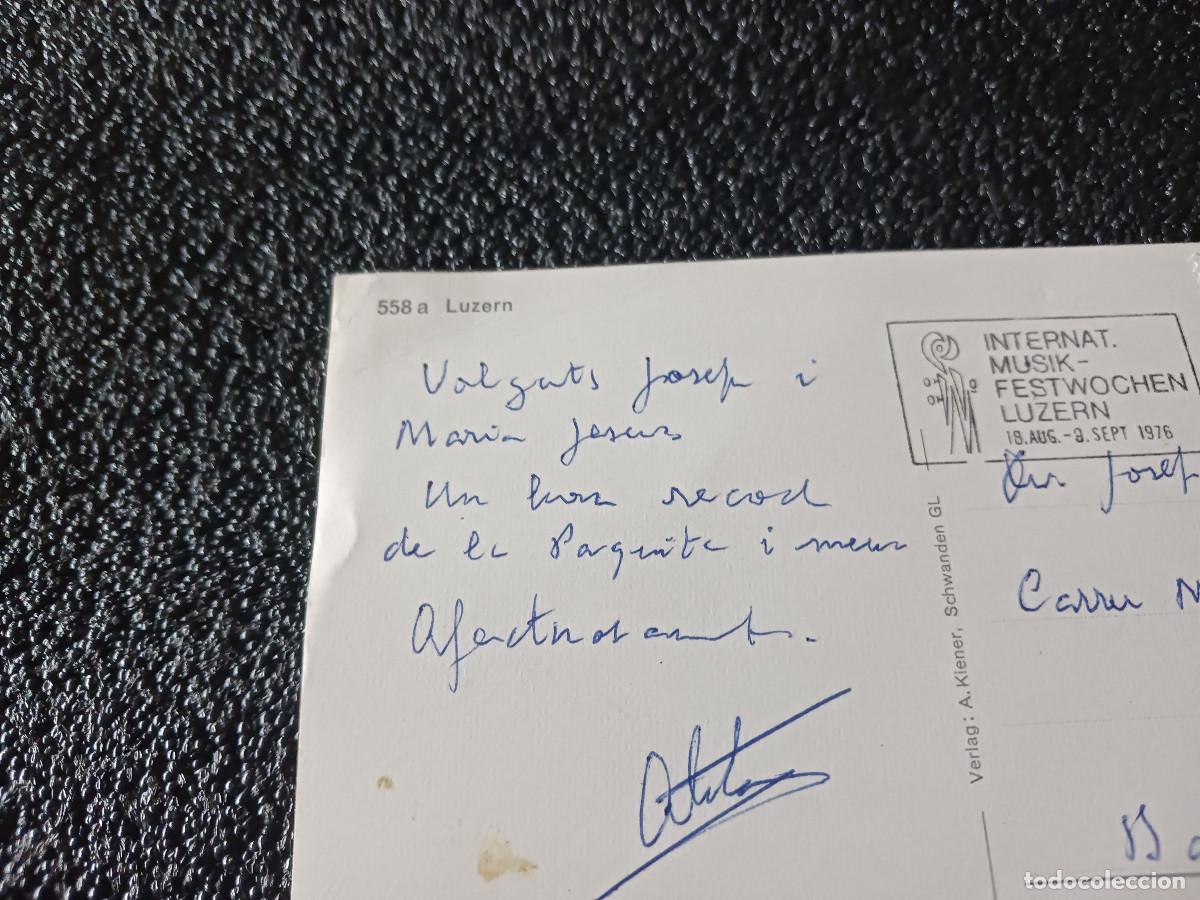 558 a Luzern
Volguts Josep i
Maria Jesus
Un bon record
de la Paquita i meu
Afectuosament.
INTERNAT.
MUSIK-
FESTWOCHEN
LUZERN
18.AUG.-9.SEPT 1976
Josep
Carrer
Verlag: A. Kiener, Schwanden GL
todocoleccion